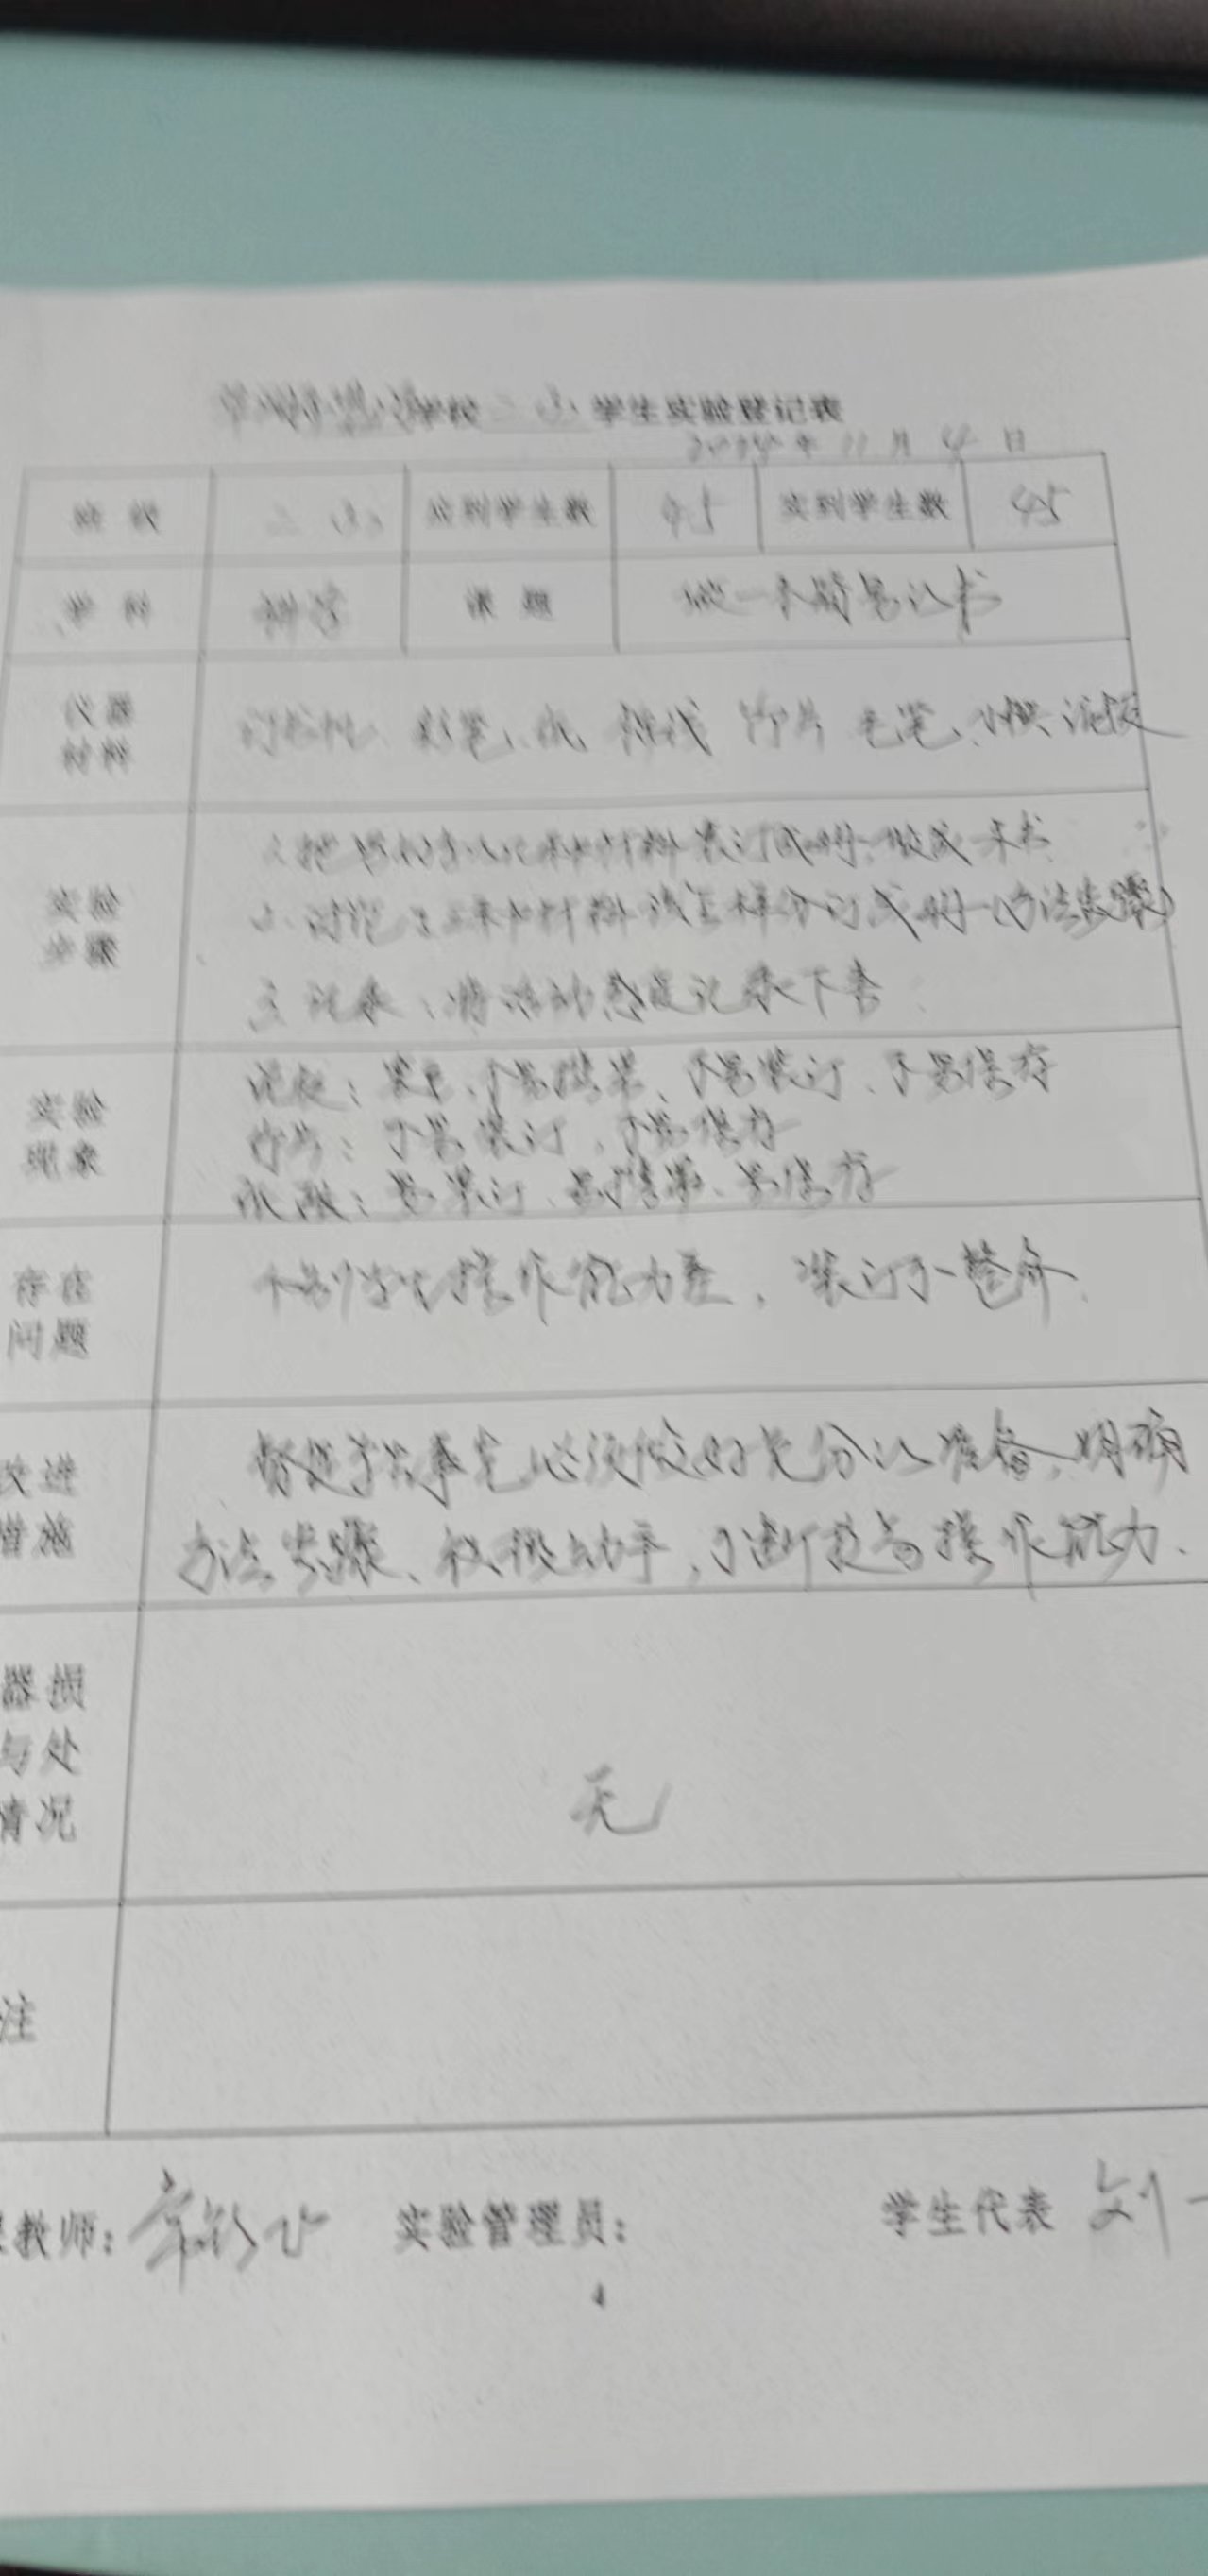 学校 学生实验登记表
2024年11月4日
班级 二 应到学生数 45 实到学生数 45
学科 科学 课题 做一本简易的书
仪器材料 彩笔、纸 竹片 毛笔、小块泥板
实验步骤 材料装订成册、做成一本书
2、讨论 材料该怎样分订成册(方法步骤)
3、记录、将活动感受记录下来
实验现象 泥板:笨重、不易携带、不易装订、不易保存
竹片:不易装订、不易保存
纸张:易装订、易携带、易保存
存在问题 个别学生操作能力差,装订不整齐、
改进措施 督促学生事先必须做好充分的准备,明确
方法步骤、积极动手,不断提高操作能力、
器损
与处
情况 无
注
教师: 实验管理员: 学生代表 刘一